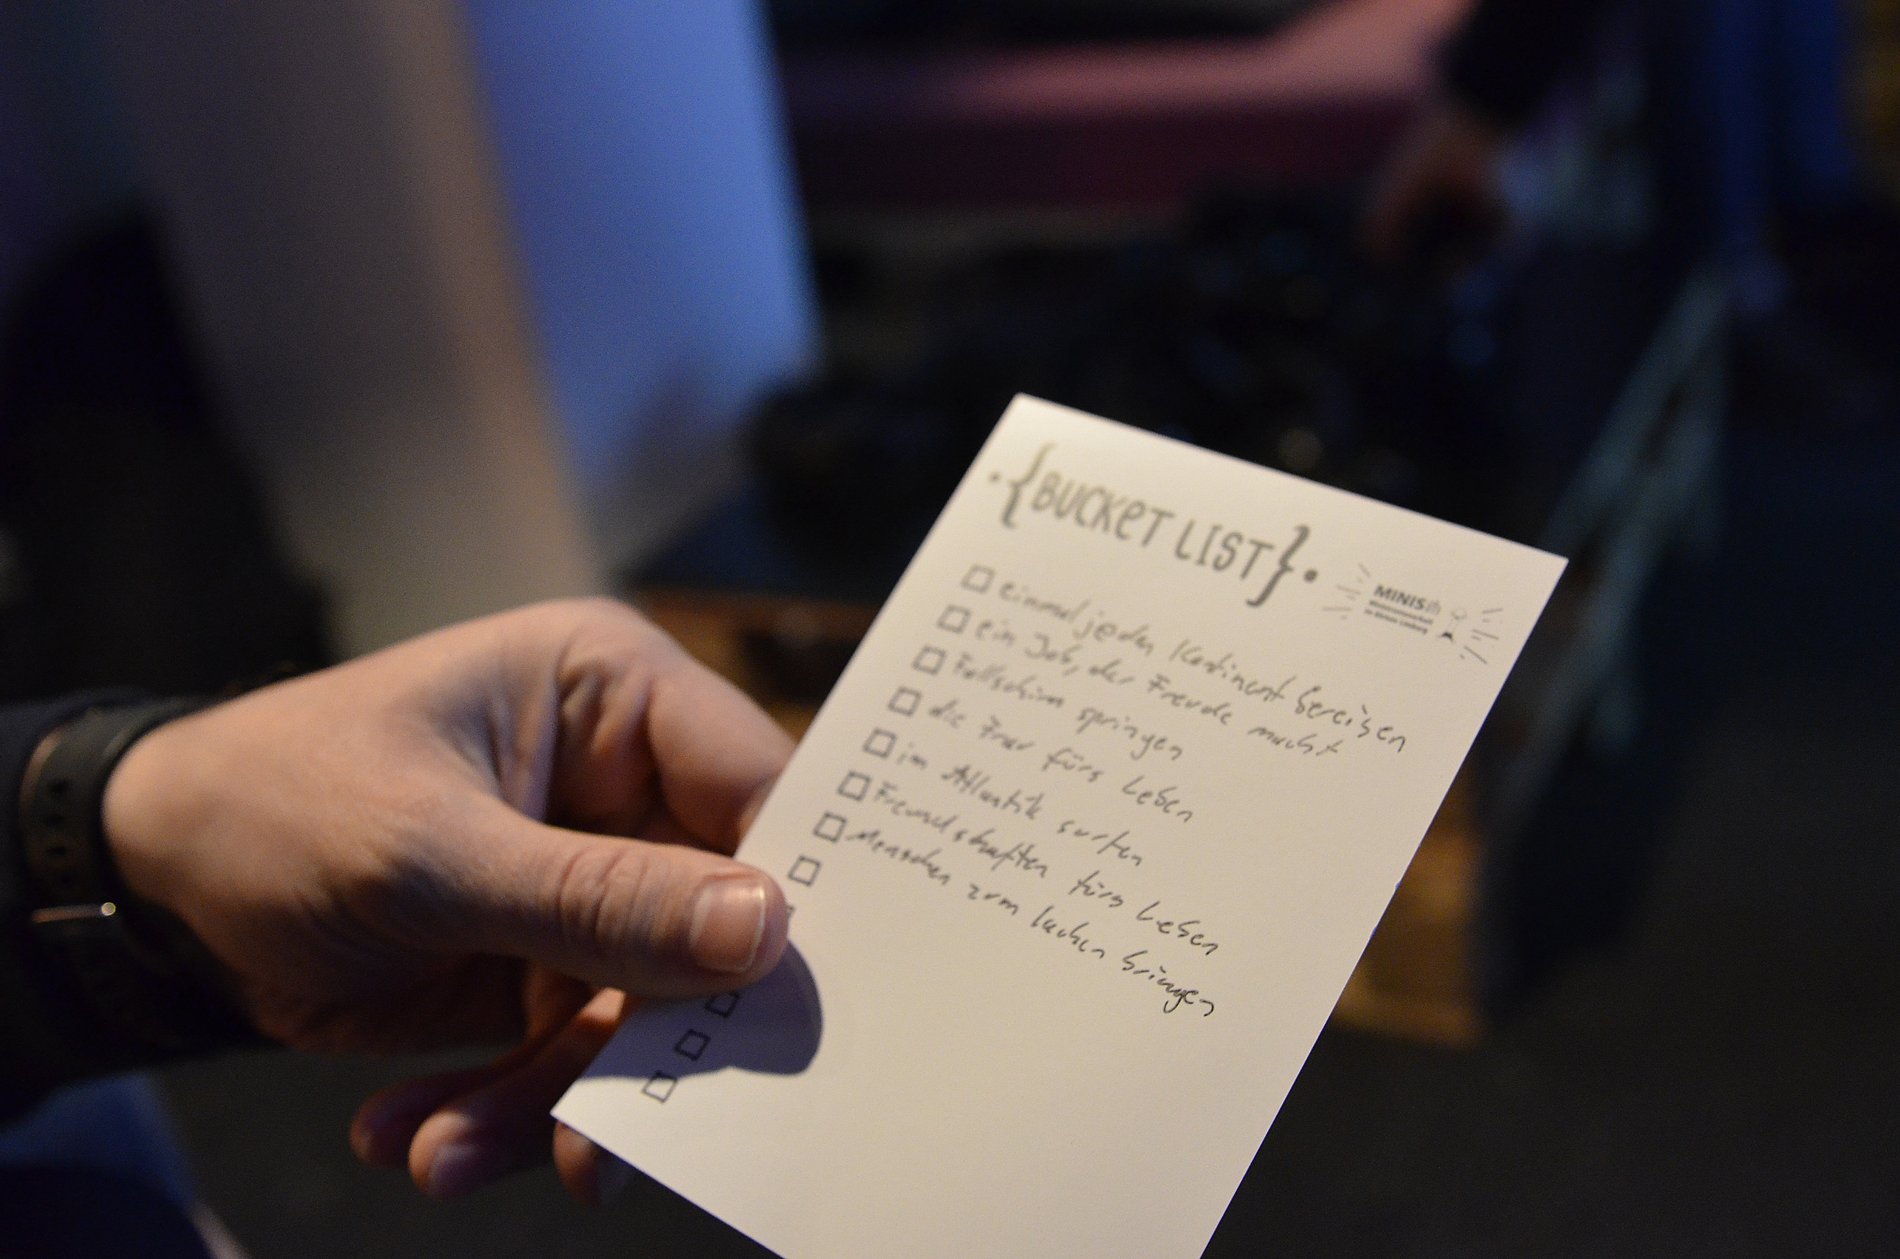 {BUCKET LIST}
MINIS
einmal jeden Kontinent bereisen
ein Job, der Freude macht
Fallschirm springen
die Frau fürs Leben
im Atlantik surfen
Freundschaften fürs Leben
Menschen zum lachen bringen